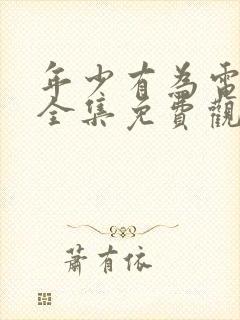 年少有為電
全集免費觀
蕭有依